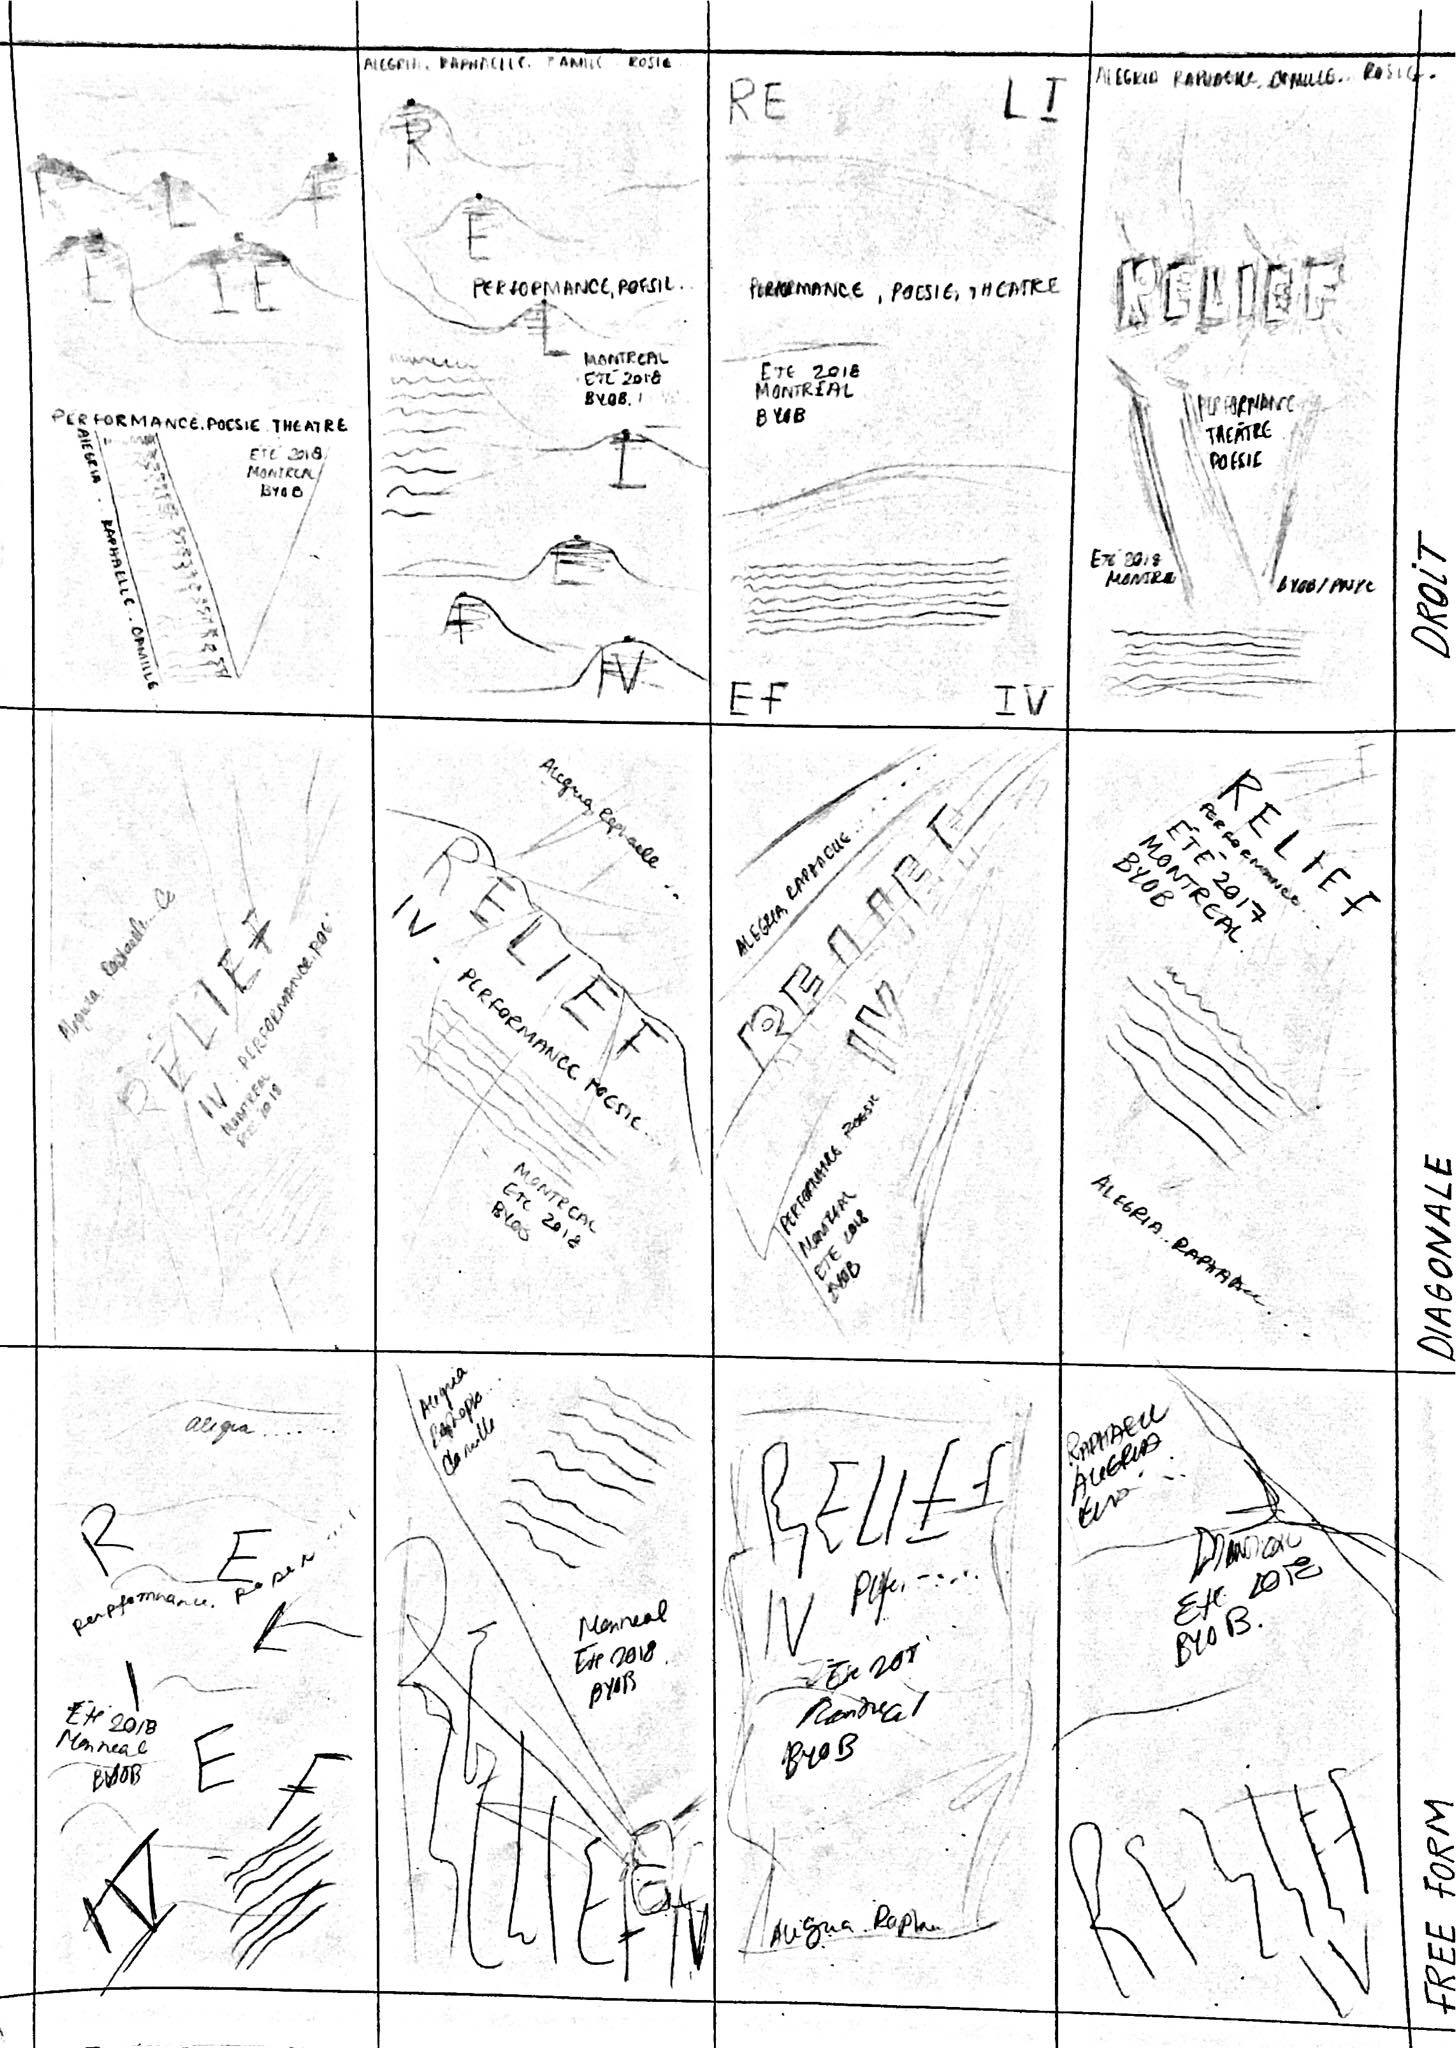 R L F
E I E
PERFORMANCE. POESIE. THEATRE
ALEGRIA. RAPHAELLE. CAMILLE
ETÉ 2018
MONTREAL
BYOB
ALEGRIA. RAPHAELLE. CAMILLE. ROSIE..
R
E
PERFORMANCE, POESIE..
L
MONTREAL
ETÉ 2018
BYOB.
I
E
F
IV
RE LI
PERFORMANCE, POESIE, THEATRE
ETE 2018
MONTRÉAL
BYOB
EF IV
ALEGRIA RAPHAELLE, CAMILLE.. ROSIE.
RELIEF
PERFORMANCE
THEÂTRE
POESIE
ETÉ 2018
MONTRE
BYOB/PWYC
DROIT
Alegria. Raphaelle.. Ca
RELIEF
IV. PERFORMANCE. POE
MONTREAL
ETE 2018
Alegria, Raphaelle...
RELIEF
IV.
PERFORMANCE. POESIE...
MONTREAL
ETE 2018
BYOB
ALEGRIA, RAPHAELLE......
RELIEF
IV
PERFORMANCE POESIE
MONTREAL
ETE 2018
BYOB
RELIEF
PERFORMANCE...
ÉTÉ 2017
MONTREAL
BYOB
ALEGRIA.. RAPHAELLE....
DIAGONALE
alegria.......
R E
Perpformance. Poesie....
L
I
Eté 2018
Monreal
BYOB
E
F
IV
Alegria
Camille
Monreal
Eté 2018.
BYOB
RELIEF IV
RELIEF
IV
Eté 201
Montreal
BYOB
Alegria. Rapha
RAPHAELL
ALEGRIA
Montreal
Eté 2018
BYOB.
RELIEF
IV
FREE FORM